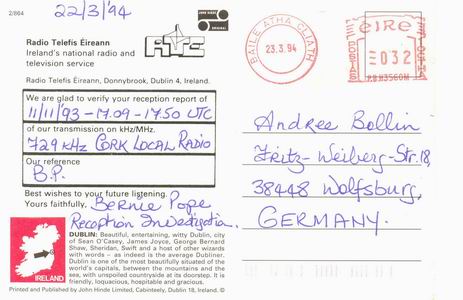 22/3/'94
2/864
JOHN HINDE
ORIGINAL
Radio Telefís Éireann
Ireland's national radio and
television service
RTE
Radio Telefís Éireann, Donnybrook, Dublin 4, Ireland.
We are glad to verify your reception report of
11/11/'93 - 17.09 - 17.50 UTC
of our transmission on kHz/MHz.
729 kHz CORK LOCAL RADIO
Our reference
B.P.
Best wishes to your future listening.
Yours faithfully, Bernie Pope
Reception Investigation.
DUBLIN: Beautiful, entertaining, witty Dublin, city
of Sean O'Casey, James Joyce, George Bernard
Shaw, Sheridan, Swift and a host of other wizards
with words – as indeed is the average Dubliner.
Dublin is one of the most beautifully situated of the
world's capitals, between the mountains and the
sea, with unspoiled countryside at its doorstep. It is
friendly, loquacious, hospitable and gracious.
IRELAND
Printed and Published by John Hinde Limited, Cabinteely, Dublin 18, Ireland. ©
BAILE ÁTHA CLIATH
23.3.94
éire
POSTAS
032
PB H3560M
Andree Bollin
Fritz-Weiberg-Str.18,
38448 Wolfsburg,
GERMANY.